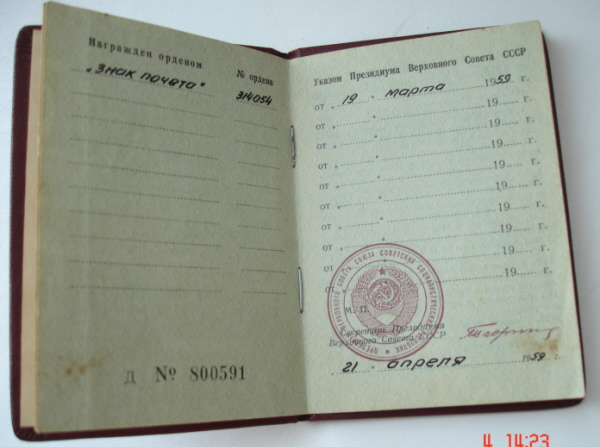 Награжден орденом № ордена
„Знак почета“ 314054
Д № 800591
Указом Президиума Верховного Совета СССР
от „ 19 “ марта 1959 г.
от „ “ 19 г.
от „ “ 19 г.
от „ “ 19 г.
от „ “ 19 г.
от „ “ 19 г.
от „ “ 19 г.
от „ “ 19 г.
от „ 19 г.
от „ 19 г.
М. П.
Секретарь Президиума
Верховного Совета СССР
21 апреля 1959 г.
ПРЕЗИДИУМ ВЕРХОВНОГО СОВЕТА СОЮЗА СОВЕТСКИХ СОЦИАЛИСТИЧЕСКИХ РЕСПУБЛИК
4 14:23